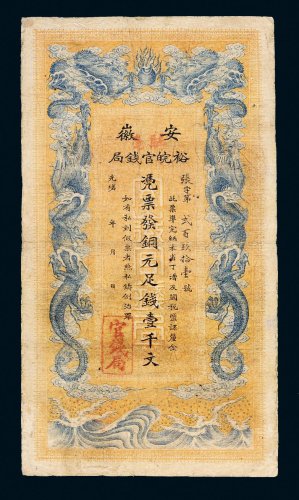 安徽
裕皖官錢局
張字第 貳百玖拾壹號
此票準完納本省丁漕及關稅鹽課釐金
憑票發銅元足錢壹千文
如有私刻假票者照私鑄例治罪
光緒 年 月 日
官錢局